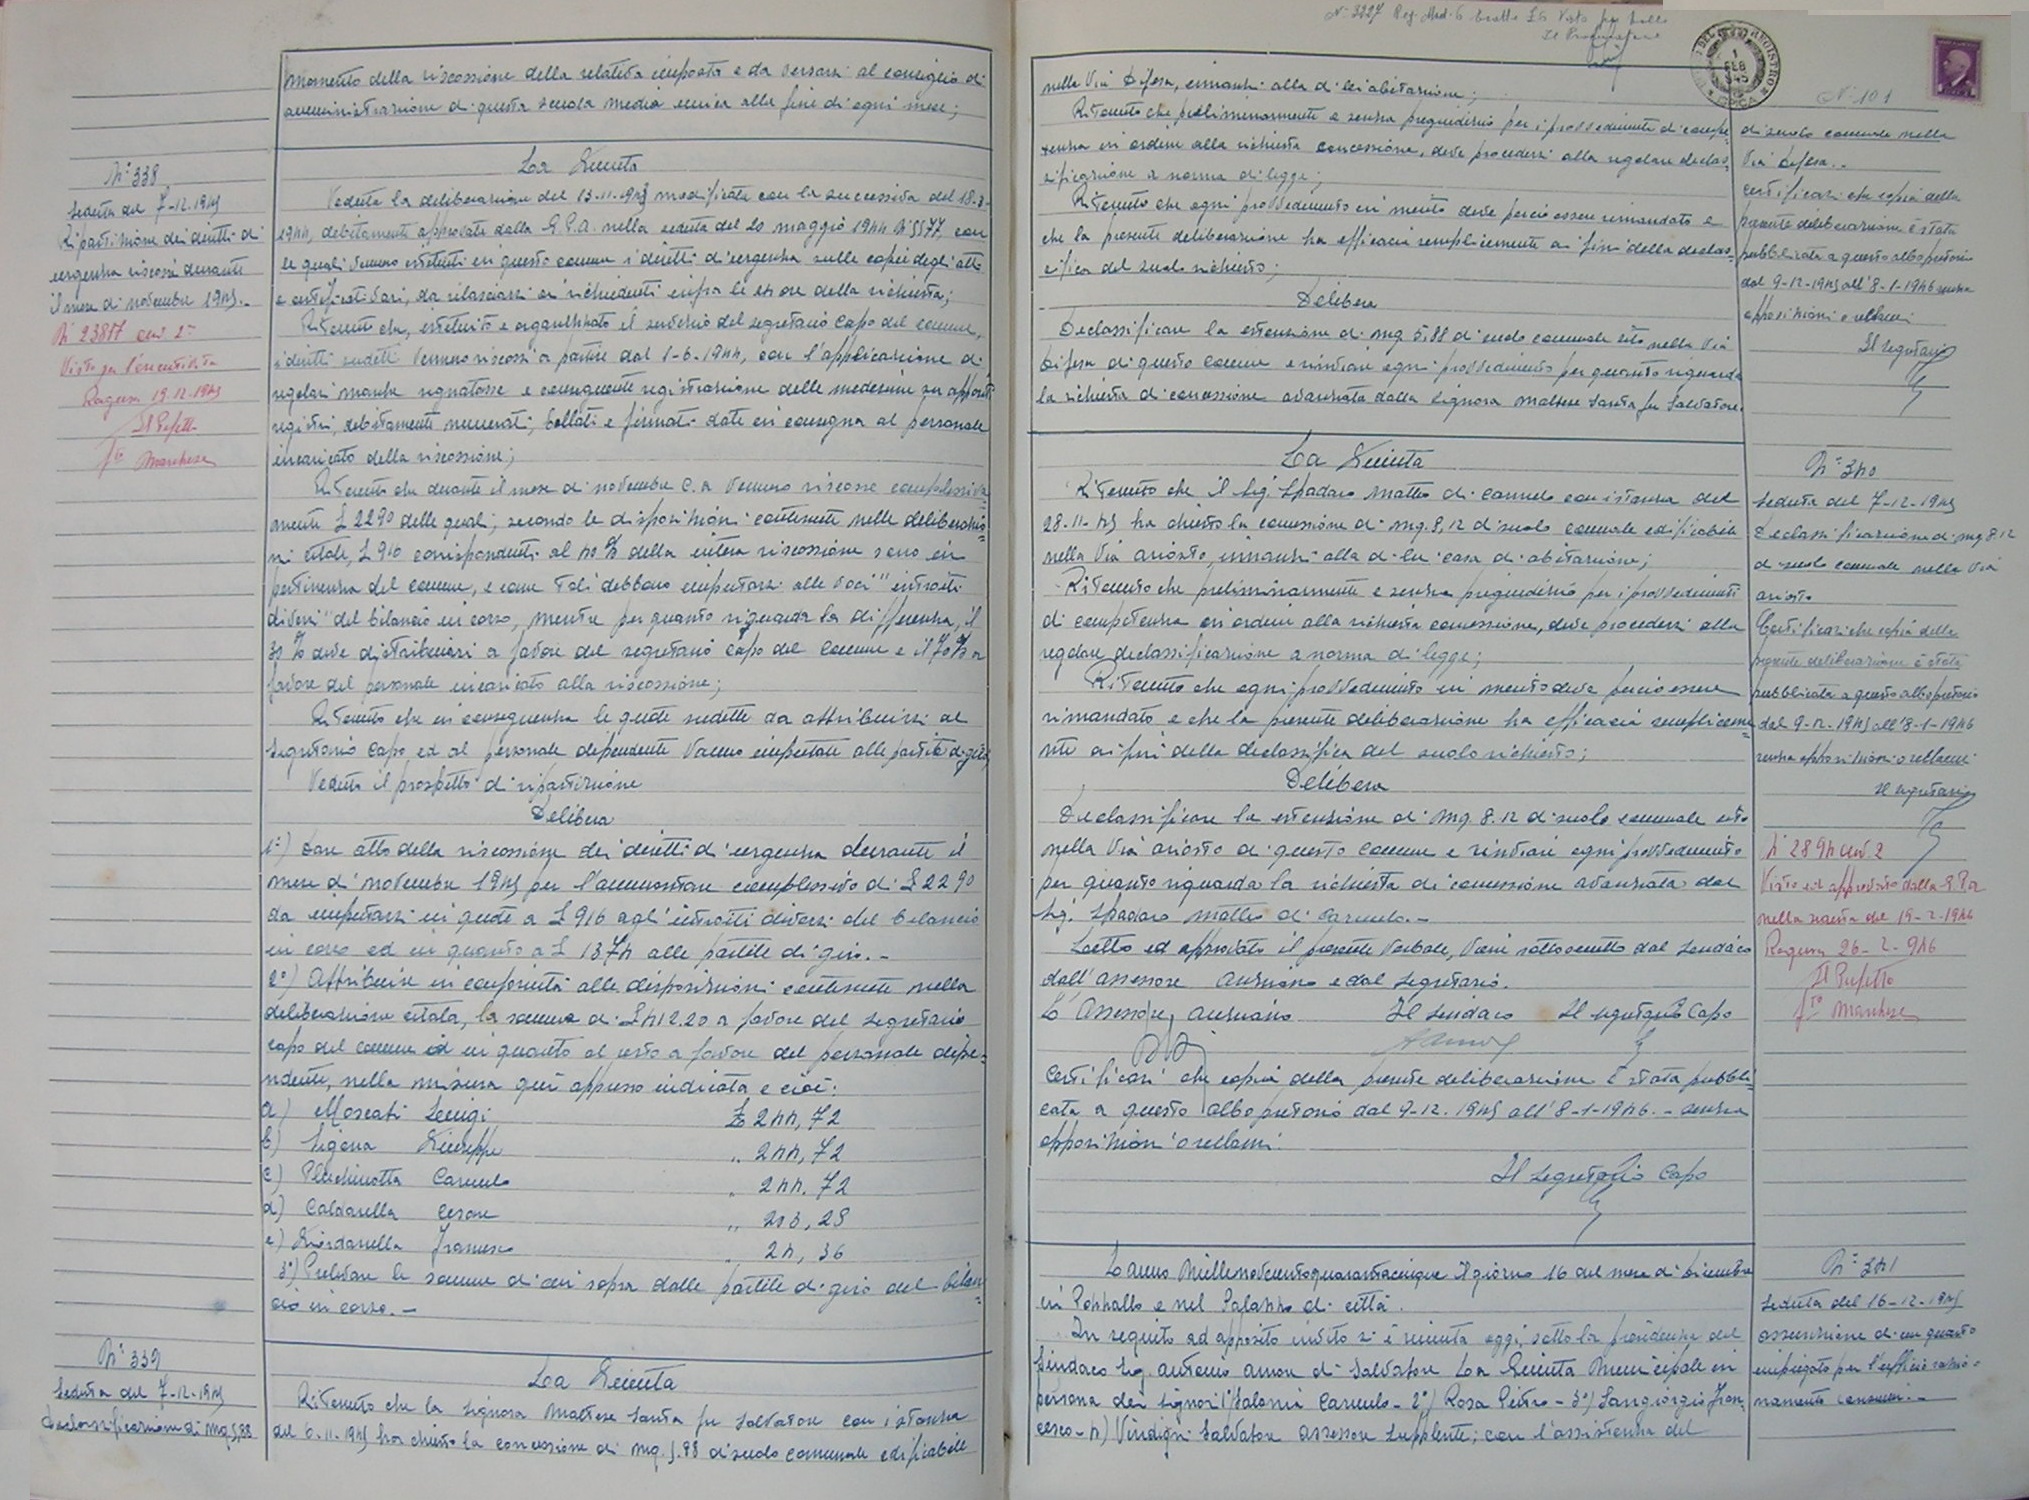 momento della riscossione della relativa imposta e da versarsi al consiglio di
amministrazione di questa scuola media unica alla fine di ogni mese;
N° 338
Seduta del 7-12-1945
Ripartizione dei diritti di
urgenza riscossi durante
il mese di novembre 1945.-
N° 23817
Visto per l'esecutività
Ragusa 19.12.1945
Il Prefetto
fto Marchese
La Giunta
Veduta la deliberazione del 13-11-1943 modificata con la successiva del 18-3-
1944, debitamente approvate dalla G.P.A. nella seduta del 20 maggio 1944 N° 5577, con
le quali venivano istituiti in questo comune i diritti di urgenza sulle copie degli atti
e certificati vari, da rilasciarsi ai richiedenti infra le 24 ore della richiesta;
Ritenuto che, istituito e organizzato il servizio dal segretario capo del comune,
i diritti sudetti vennero riscossi a partire dal 1-6-1944, con l'applicazione di
regolari marche segnatasse e conseguente registrazione delle medesime su appositi
registri, debitamente numerati, bollati e firmati dati in consegna al personale
incaricato della riscossione;
Ritenuto che durante il mese di novembre c.a. vennero riscosse complessiva=
mente £ 2290 delle quali, secondo le disposizioni contenute nelle deliberazio=
ni citate, £ 916 corrispondenti al 40% della intera riscossione sono in
pertinenza del comune, e come tali debbono imputarsi alle voci "introiti
diversi" del bilancio in corso, mentre per quanto riguarda la differenza, il
30% deve distribuirsi a favore del segretario capo del comune e il 70% a
favore del personale incaricato alla riscossione;
Ritenuto che in conseguenza le quote sudette da attribuirsi al
segretario capo ed al personale dipendente vanno imputate alle partite di giro,
Veduto il prospetto di ripartizione
Delibera
1°) Dare atto della riscossione dei diritti di urgenza durante il
mese di novembre 1945 per l'ammontare complessivo di £ 2290
da imputarsi in quote a £ 916 agli introiti diversi del bilancio
in corso ed in quanto a £ 1374 alle partite di giro.-
2°) Attribuire in conformità alle disposizioni contenute nella
deliberazione citata, la somma di £ 412.20 a favore del segretario
capo del comune ed in quanto al resto a favore del personale dipe=
ndente, nella misura qui appresso indicata e cioè:
a) Moscati Luigi £ 244,72
b) Sigona Giuseppe " 244,72
c) Pluchinotta Carmelo " 244.72
d) Caldarella Cesare " 203,28
e) Giordanella Francesco 24,36
3°) Prelevare le somme di cui sopra dalle partite di giro del bilan=
cio in corso.-
N° 339
Seduta del 7-12-1945
Declassificazione di mq 5,88
La Giunta
Ritenuto che la signora Maltese Santa fu Salvatore con istanza
del 6-11-1945 ha chiesto la concessione di mq. 5.88 di suolo comunale edificabile
N° 3227
Il Procuratore
1 FEB 945
N° 101
nella Via Difesa, innanzi alla di lei abitazione;
Ritenuto che preliminarmente e senza pregiudizio per i provvedimenti di compe=
tenza in ordine alla richiesta concessione, deve procedersi alla regolare declas=
sificazione a norma di legge;
Ritenuto che ogni provvedimento in merito deve perciò essere rimandato e
che la presente deliberazione ha efficacia semplicemente ai fini della declas=
sifica del suolo richiesto;
Delibera
Declassificare la estensione di mq 5,88 di suolo comunale sito nella Via
Difesa di questo comune e rinviare ogni provvedimento per quanto riguarda
la richiesta di concessione avanzata dalla signora Maltese Santa fu Salvatore.
di suolo comunale nella
Via Difesa.-
Certificasi che copia della
presente deliberazione è stata
pubblicata a questo albo pretorio
dal 9-12-1945 all'8-1-1946 senza
opposizioni o reclami
Il Segretario
La Giunta
Ritenuto che il Sig. Spadaro Matteo di Carmelo con istanza del
28-11-45 ha chiesto la concessione di mq. 8,12 di suolo comunale edificabile
nella Via Ariosto, innanzi alla di lui casa di abitazione;
Ritenuto che preliminarmente e senza pregiudizio per i provvedimenti
di competenza in ordine alla richiesta concessione, deve procedersi alla
regolare declassificazione a norma di legge;
Ritenuto che ogni provvedimento in merito deve perciò essere
rimandato e che la presente deliberazione ha efficacia sempliceme=
nte ai fini della declassifica del suolo richiesto;
Delibera
Declassificare la estensione di mq. 8.12 di suolo comunale sito
nella Via Ariosto di questo comune e rinviare ogni provvedimento
per quanto riguarda la richiesta di concessione avanzata dal
Sig. Spadaro Matteo di Carmelo.-
Letto ed approvato il presente verbale, viene sottoscritto dal Sindaco
dall'assessore anziano e dal segretario.
L'assessore anziano Il Sindaco Il segretario Capo
Certificasi che copia della presente deliberazione è stata pubbli=
cata a questo albo pretorio dal 9-12.1945 all'8-1-1946.- senza
opposizioni o reclami.
Il Segretario Capo
N° 340
Seduta del 7-12-1945
Declassificazione di mq 8.12
di suolo comunale nella Via
Ariosto
Certificasi che copia della
presente deliberazione è stata
pubblicata a questo albo pretorio
dal 9-12-1945 all'8-1-1946
senza opposizioni o reclami
Il segretario
N° 2894
Visto ed approvato dalla G.P.A.
nella seduta del 19-2-1946
Ragusa 26-2-946
Il Prefetto
fto Marchese
L'anno Millenovecentoquarantacinque il giorno 16 del mese di Dicembre
in Pozzallo e nel Palazzo di città.
In seguito ad apposito invito si è riunita oggi, sotto la presidenza del
Sindaco Sig. Antonio Amore di Salvatore La Giunta Municipale in
persona dei Signori 1°) Salonia Carmelo - 2°) Rosa Pietro - 3°) Sangiorgio Fran=
cesco - 4) Vindigni Salvatore assessore supplente; con l'assistenza del
N° 341
Seduta del 16-12-1945
Assunzione di un quarto
impiegato per l'ufficio razio=
namento consumi.-